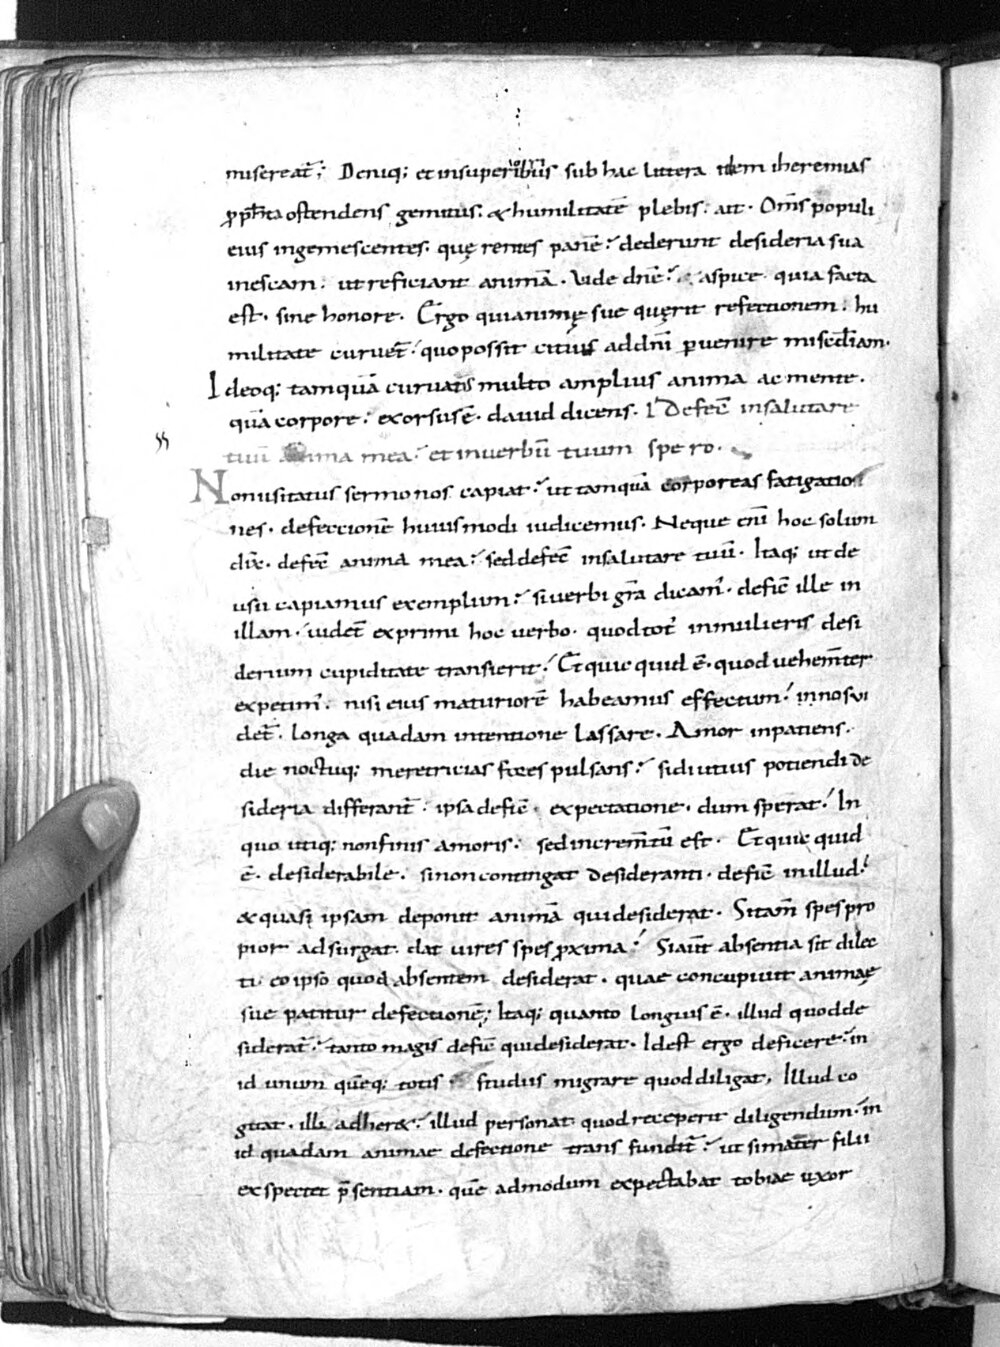 misereat᷑; Deniq; et insuperioribus sub hac littera idem iheremias
ꝓph̅ta ostendens gemitus. & humilitatē plebis. ait. Om̅s populi
eius ingemescentes. quęrentes panē. dederunt desideria sua
inescam. ut reficiant animā. Vide dn̅e. aspice quia facta
est. sine honore. Ergo qui animę suę quęrit refectionem. hu
militate curuet̅. quo possit citius ad dn̅i ꝑuenire mis̅c̅diam.
Ideoq; tamquā curuatus multo amplius anima ac mente.
quā corpore. exorsus ē. dauid dicens. Defec̅ insalutare
tuū anima mea. et inuerbū tuum spero.
Non usitatus sermo nos capiat. ut tamquā corporeas fatigatio
nes. defeccionē huiusmodi iudicemus. Neque eni̅ hoc solum
dix̅. defec̅ anima mea. sed defec̅ insalutare tuū. Itaq; ut de
usu capiamus exemplum. si uerbi gr̅a dicam᷑. defic̅ ille in
illam. uidet̅ exprimi hoc uerbo. quod tot᷑ in mulieris desi
derium cupiditate transierit. Et quicquid ē. quod uehem̅ter
expetim᷑. nisi eius maturiorē habeamus effectum. in nos ui
det̅. longa quadam intentione lassare. Amor inpatiens.
die noctuq; meretricias fores pulsans. si diutius potiendi de
sideria differant̅. ipsa defic̅ expectatione. dum sperat. In
quo utiq; non finis amoris. sed increm̅tū est. Et quicquid
ē. desiderabile. si non contingat desideranti. defic̅ in illud.
& quasi ipsam deponit animā qui desiderat. Si tam̅ spes pro
pior adsurgat. dat uires spes ꝓxima. Si aūt absentia sit dilec
ti. eo ipso quod absentem desiderat. quae concupiuit animę
suę patitur defectionē; Itaq; quanto longius ē. illud quod de
siderat᷑. tanto magis defic̅ qui desiderat. Id est ergo deficere. in
id unum quēq; totis studiis migrare quod diligat, Illud co
gitat. illi adher&. illud personat. quod receperit diligendum. in
id quadam animae defectione transfundit᷑. ut si mater filii
expectet p̅sentiam. quē admodum expectabat tobiae uxor